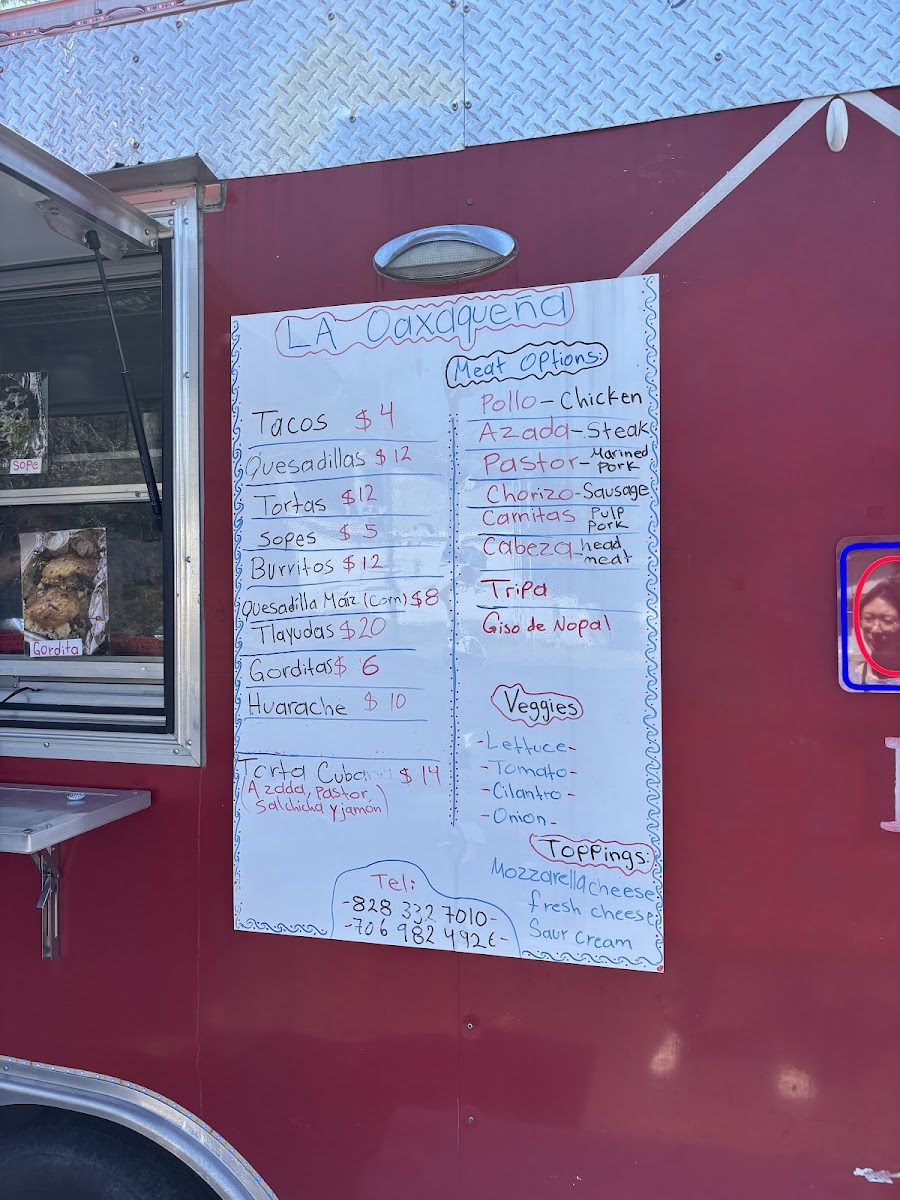 LA Oaxaqueña
Tacos $4
Quesadillas $12
Tortas $12
Sopes $5
Burritos $12
Quesadilla Máiz (corn) $8
Tlayudas $20
Gorditas $6
Huarache $10
Torta Cubana $14
(Azada, Pastor,
Salchicha y jamón)
Meat Options:
Pollo - Chicken
Azada - Steak
Pastor - Marined
Pork
Chorizo - Sausage
Carnitas Pulp
Pork
Cabeza - head
meat
Tripa
Giso de Nopal
Veggies
- Lettuce -
- Tomato -
- Cilantro -
- Onion -
Toppings:
Mozzarella cheese
fresh cheese
Saur cream
Tel:
- 828 332 7010 -
- 706 982 4926 -
Sope
Gordita